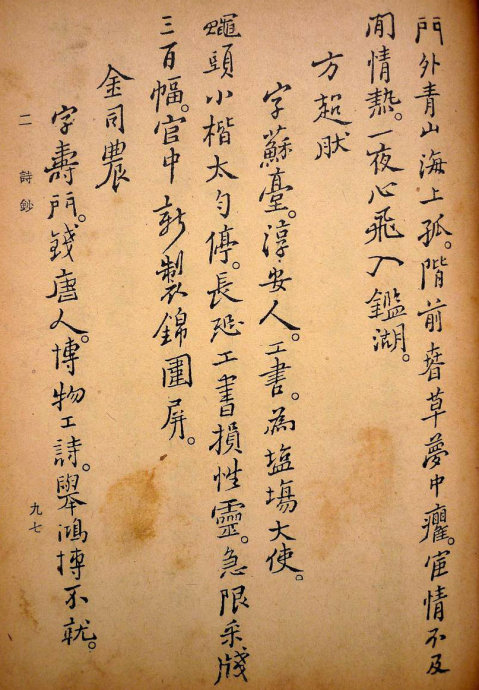 門外青山海上孤。階前春草夢中癯。宦情不及
閒情熱。一夜心飛入鑑湖。
方超然
字蘇臺。淳安人。工書。為塩場大使。
蠅頭小楷太勻停。長恐工書損性靈。急限采牋
三百幅。官中新製錦圍屏。
金司農
字壽門。錢唐人。博物工詩。舉鴻博不就。
二 詩鈔 九七